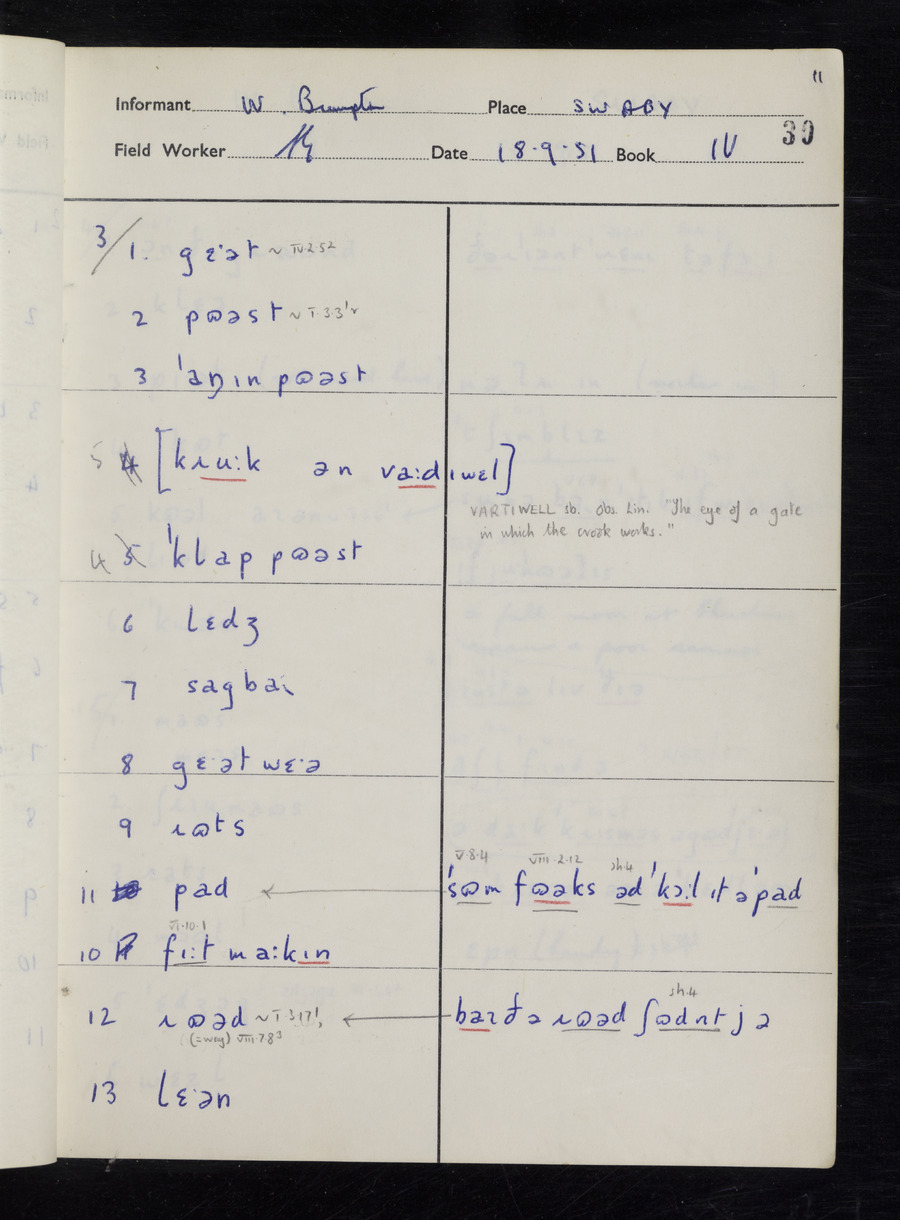 11
Informant W. Brumpton Place SWABY
30
Field Worker Date 18·9·51 Book IV
3/ 1. gɛˑət ~ IV·2·5²
2 pʊəst ~ I·3·3'r
3 ˈaŋɪn pʊəst
5 [kɹuːk ən vaːdɪwɛl]
VARTIWELL sb. Obs. Lin. "The eye of a gate
in which the crook works."
4 ˈklap pʊəst
6 lɛdʒ
7 sagbaɪ
8 gɛˑət wɛˑə
9 ɹʊts
V·8·4 VIII·2·12 sh·4
11 pad ˈsʊm fʊəks əd ˈkɔːl ɪt ə ˈpad
VI·10·1
10 fɪːt maːkɪn
sh·4
12 ɹʊəd ~ I·3·17! baɪ ðə ɹʊəd ʃʊdnt jə
(=way) VIII·7·8³
13 lɛˑən